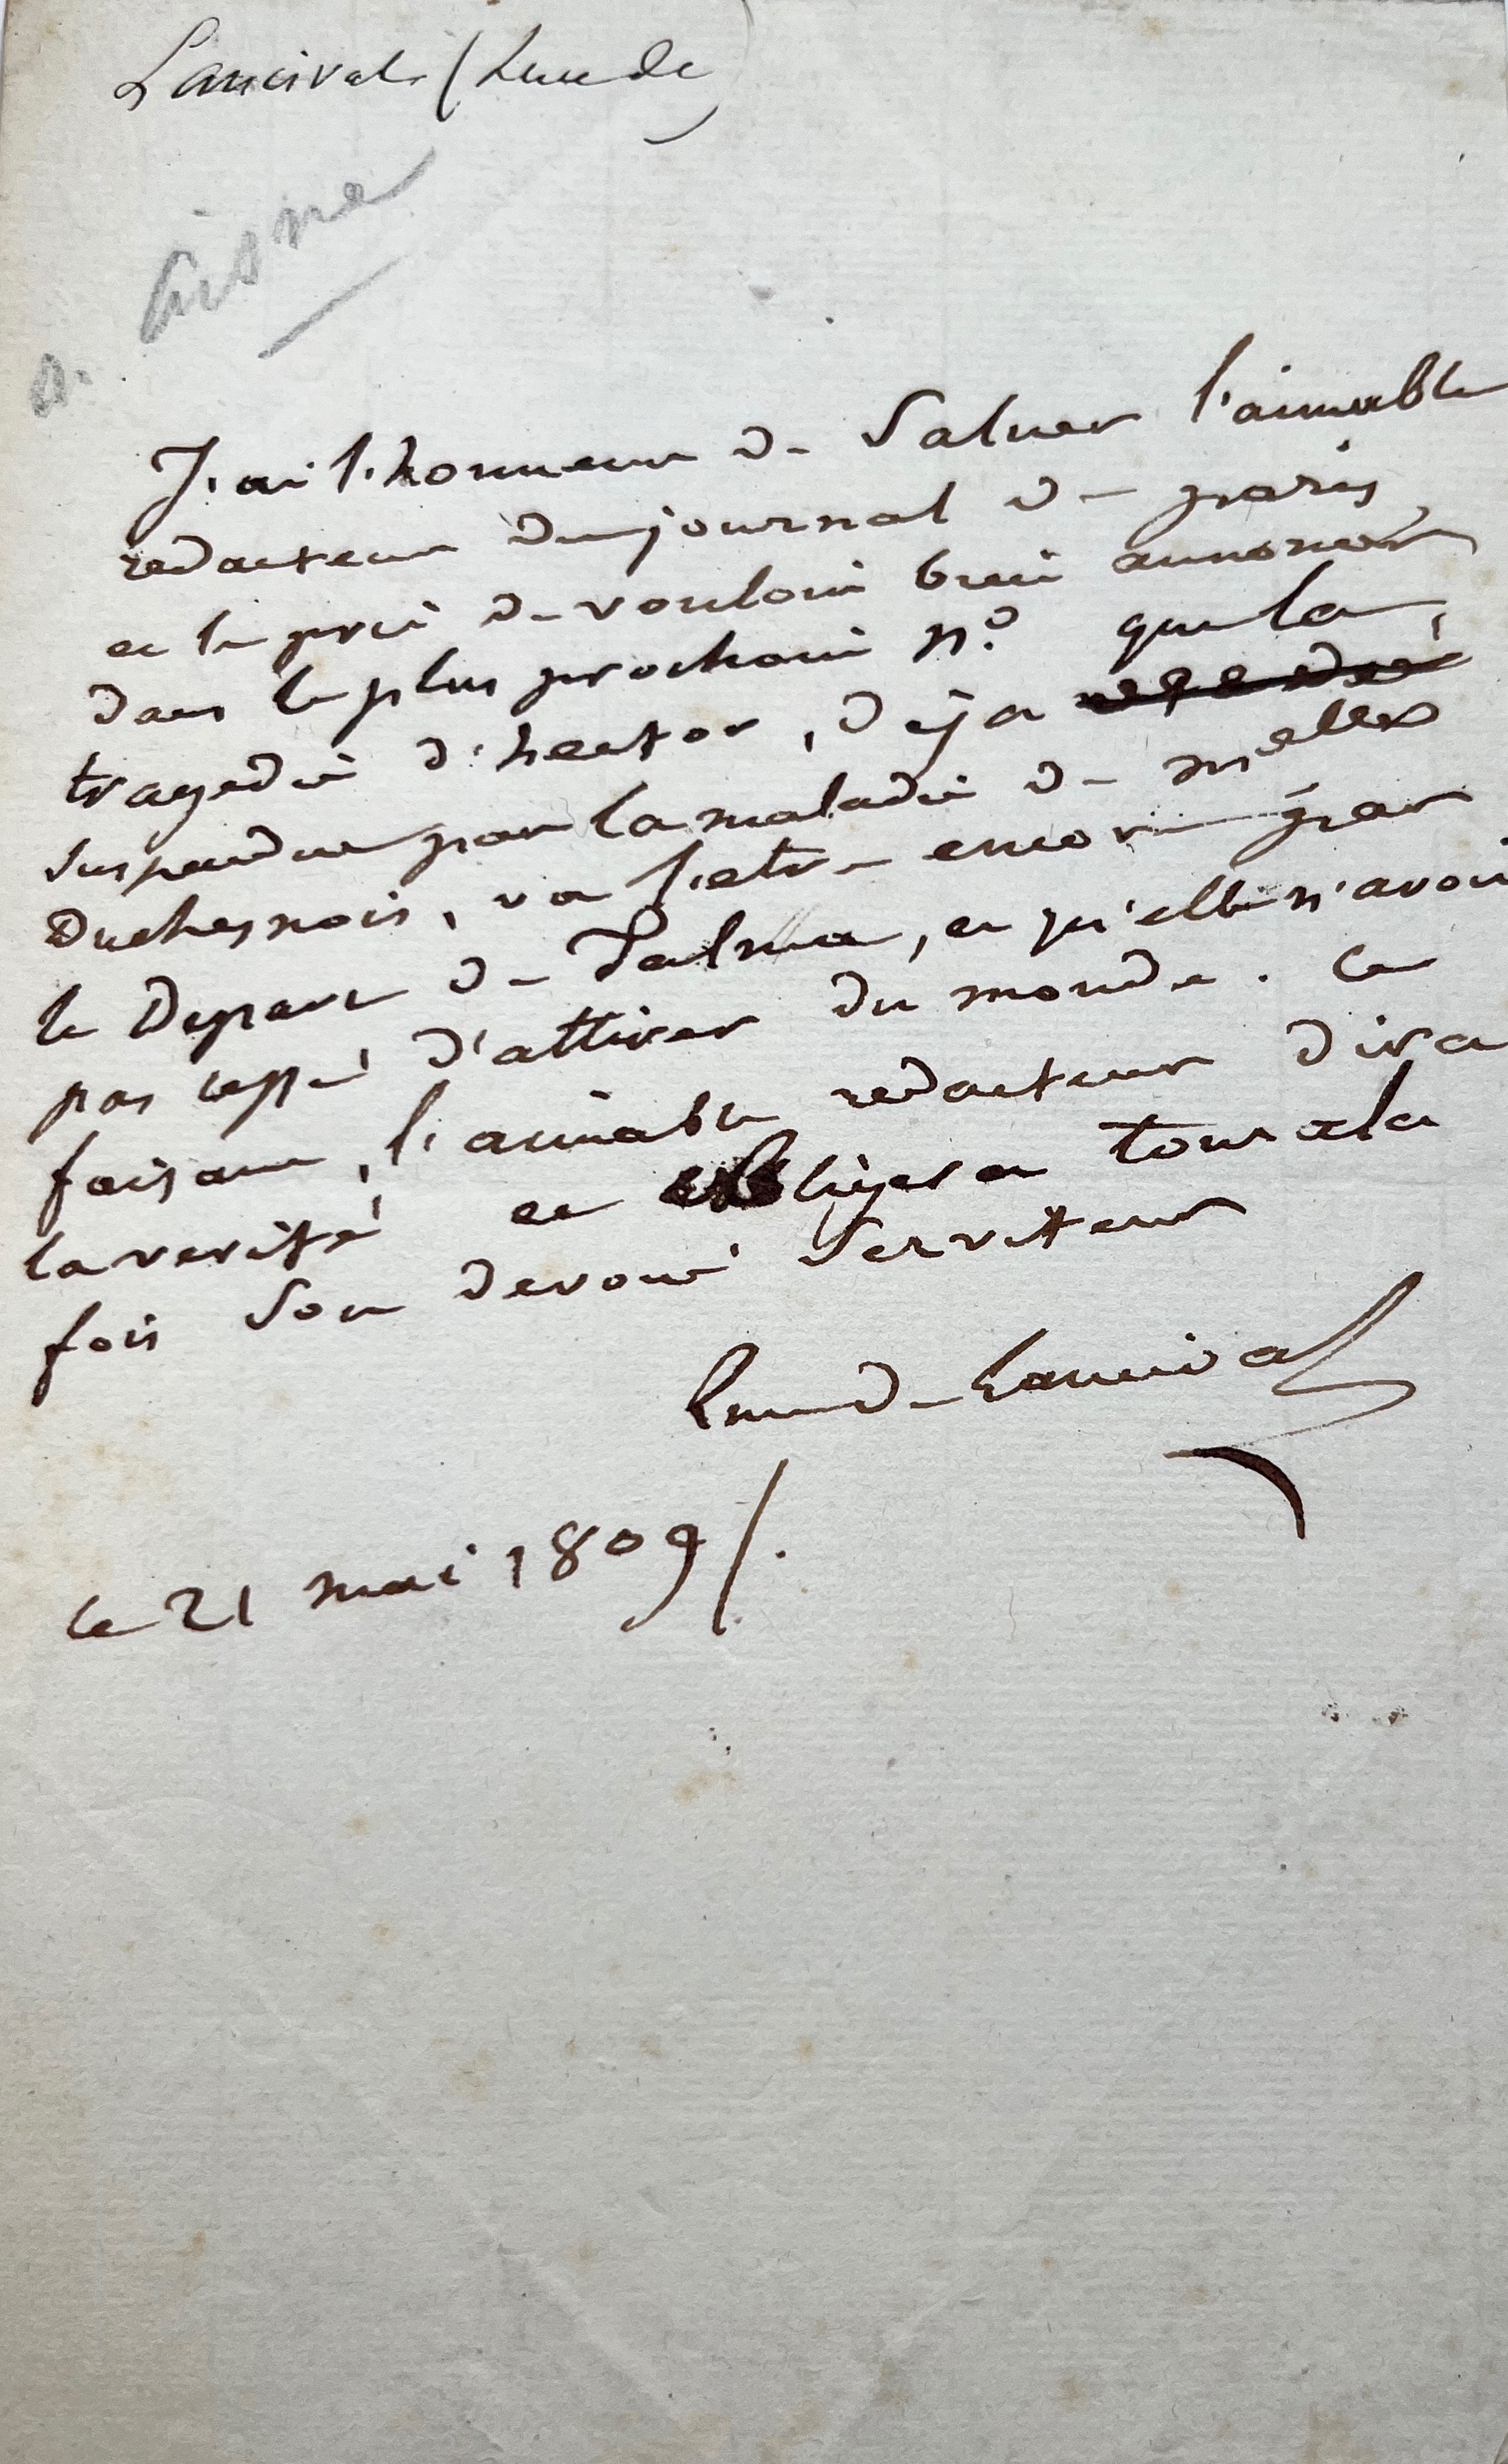 Lancival (Luce de)
a. Aisne
J'ai l'honneur de saluer l'aimable
redacteur du journal de paris
et le prie de vouloir bien annoncer
dans le plus prochain n.o que la
tragedie d'hector, deja
suspendue par la maladie de melle
Duchesnois, va l'etre encore par
le Depart de Talma, et qu'elle n'avoit
pas cessé d'attirer du monde. Ce
faisant, l'aimable redacteur dira
la verité et obligera tour a la
fois son devoué serviteur
Luce de Lancival
ce 21 mai 1809/.